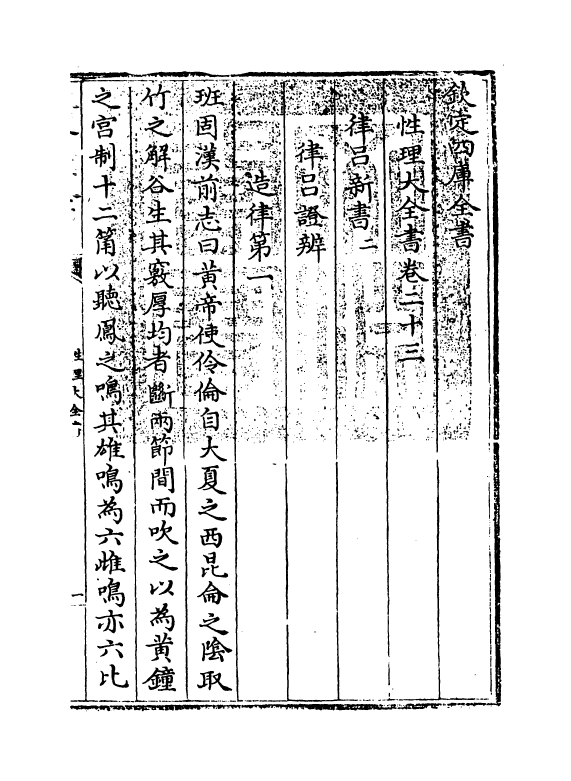 欽定四庫全書
性理大全書卷二十三
律呂新書二
律呂證辨
造律第一
班固漢前志曰黃帝使伶倫自大夏之西昆侖之陰取
竹之解谷生其竅厚均者斷兩節間而吹之以為黃鐘
之宮制十二筩以聽鳳之鳴其雄鳴為六雌鳴亦六比